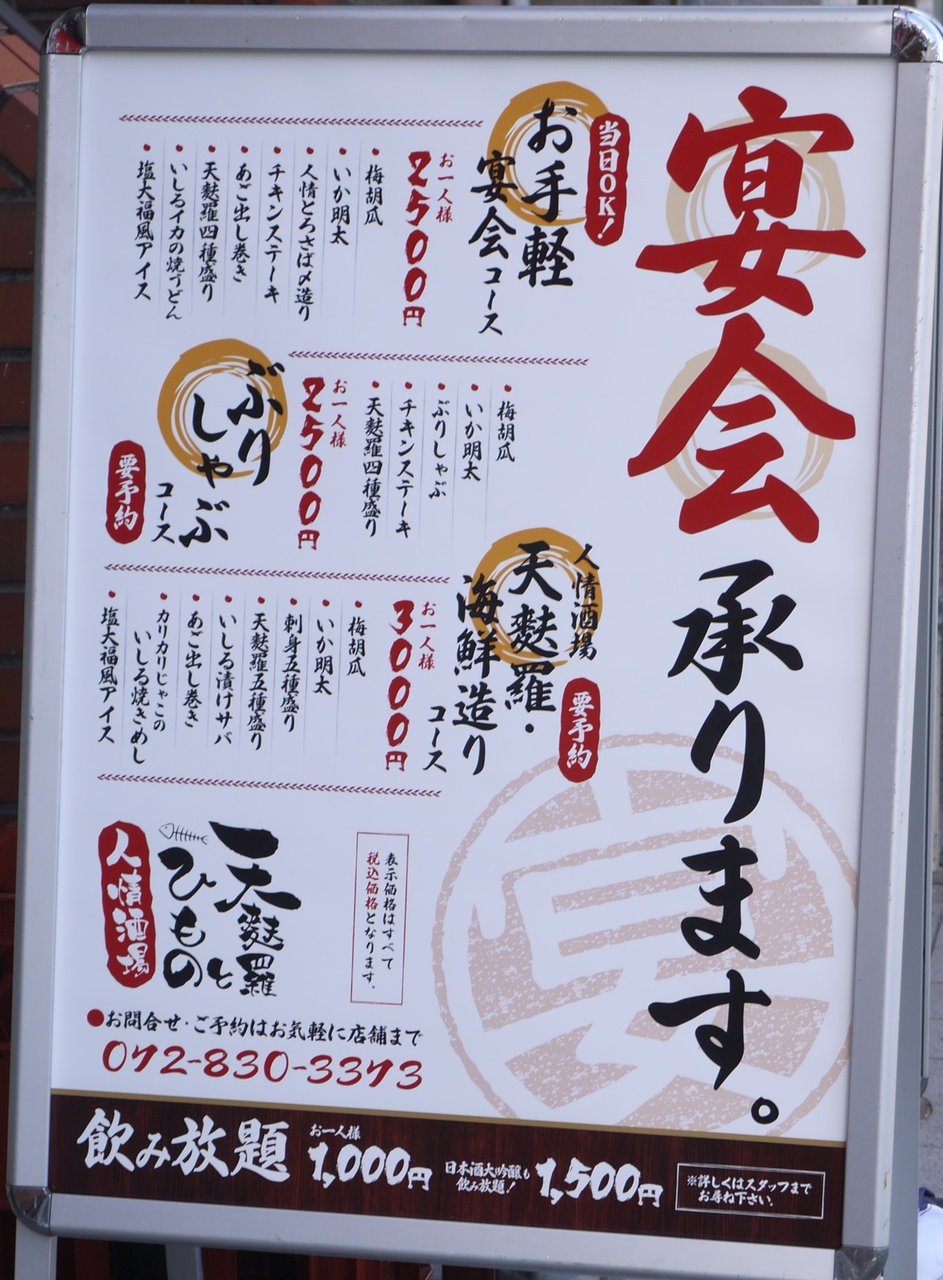 宴会承ります。
当日OK!
お手軽
宴会コース
お一人様
2500円
梅胡瓜
いか明太
人情とろさば〆造り
チキンステーキ
あご出し巻き
天麩羅四種盛り
いしるイカの焼うどん
塩大福風アイス
梅胡瓜
いか明太
ぶりしゃぶ
チキンステーキ
天麩羅四種盛り
お一人様
2500円
ぶり
しゃぶ
コース
要予約
人情酒場
天麩羅・
海鮮造り
コース
要予約
お一人様
3000円
梅胡瓜
いか明太
刺身五種盛り
天麩羅五種盛り
いしる漬けサバ
あご出し巻き
カリカリじゃこの
いしる焼きめし
塩大福風アイス
表示価格はすべて
税込価格となります。
天麩羅と
ひもの
人情酒場
●お問合せ・ご予約はお気軽に店舗まで
072-830-3373
飲み放題
お一人様
1,000円
日本酒大吟醸も
飲み放題!
1,500円
※詳しくはスタッフまで
お尋ね下さい。